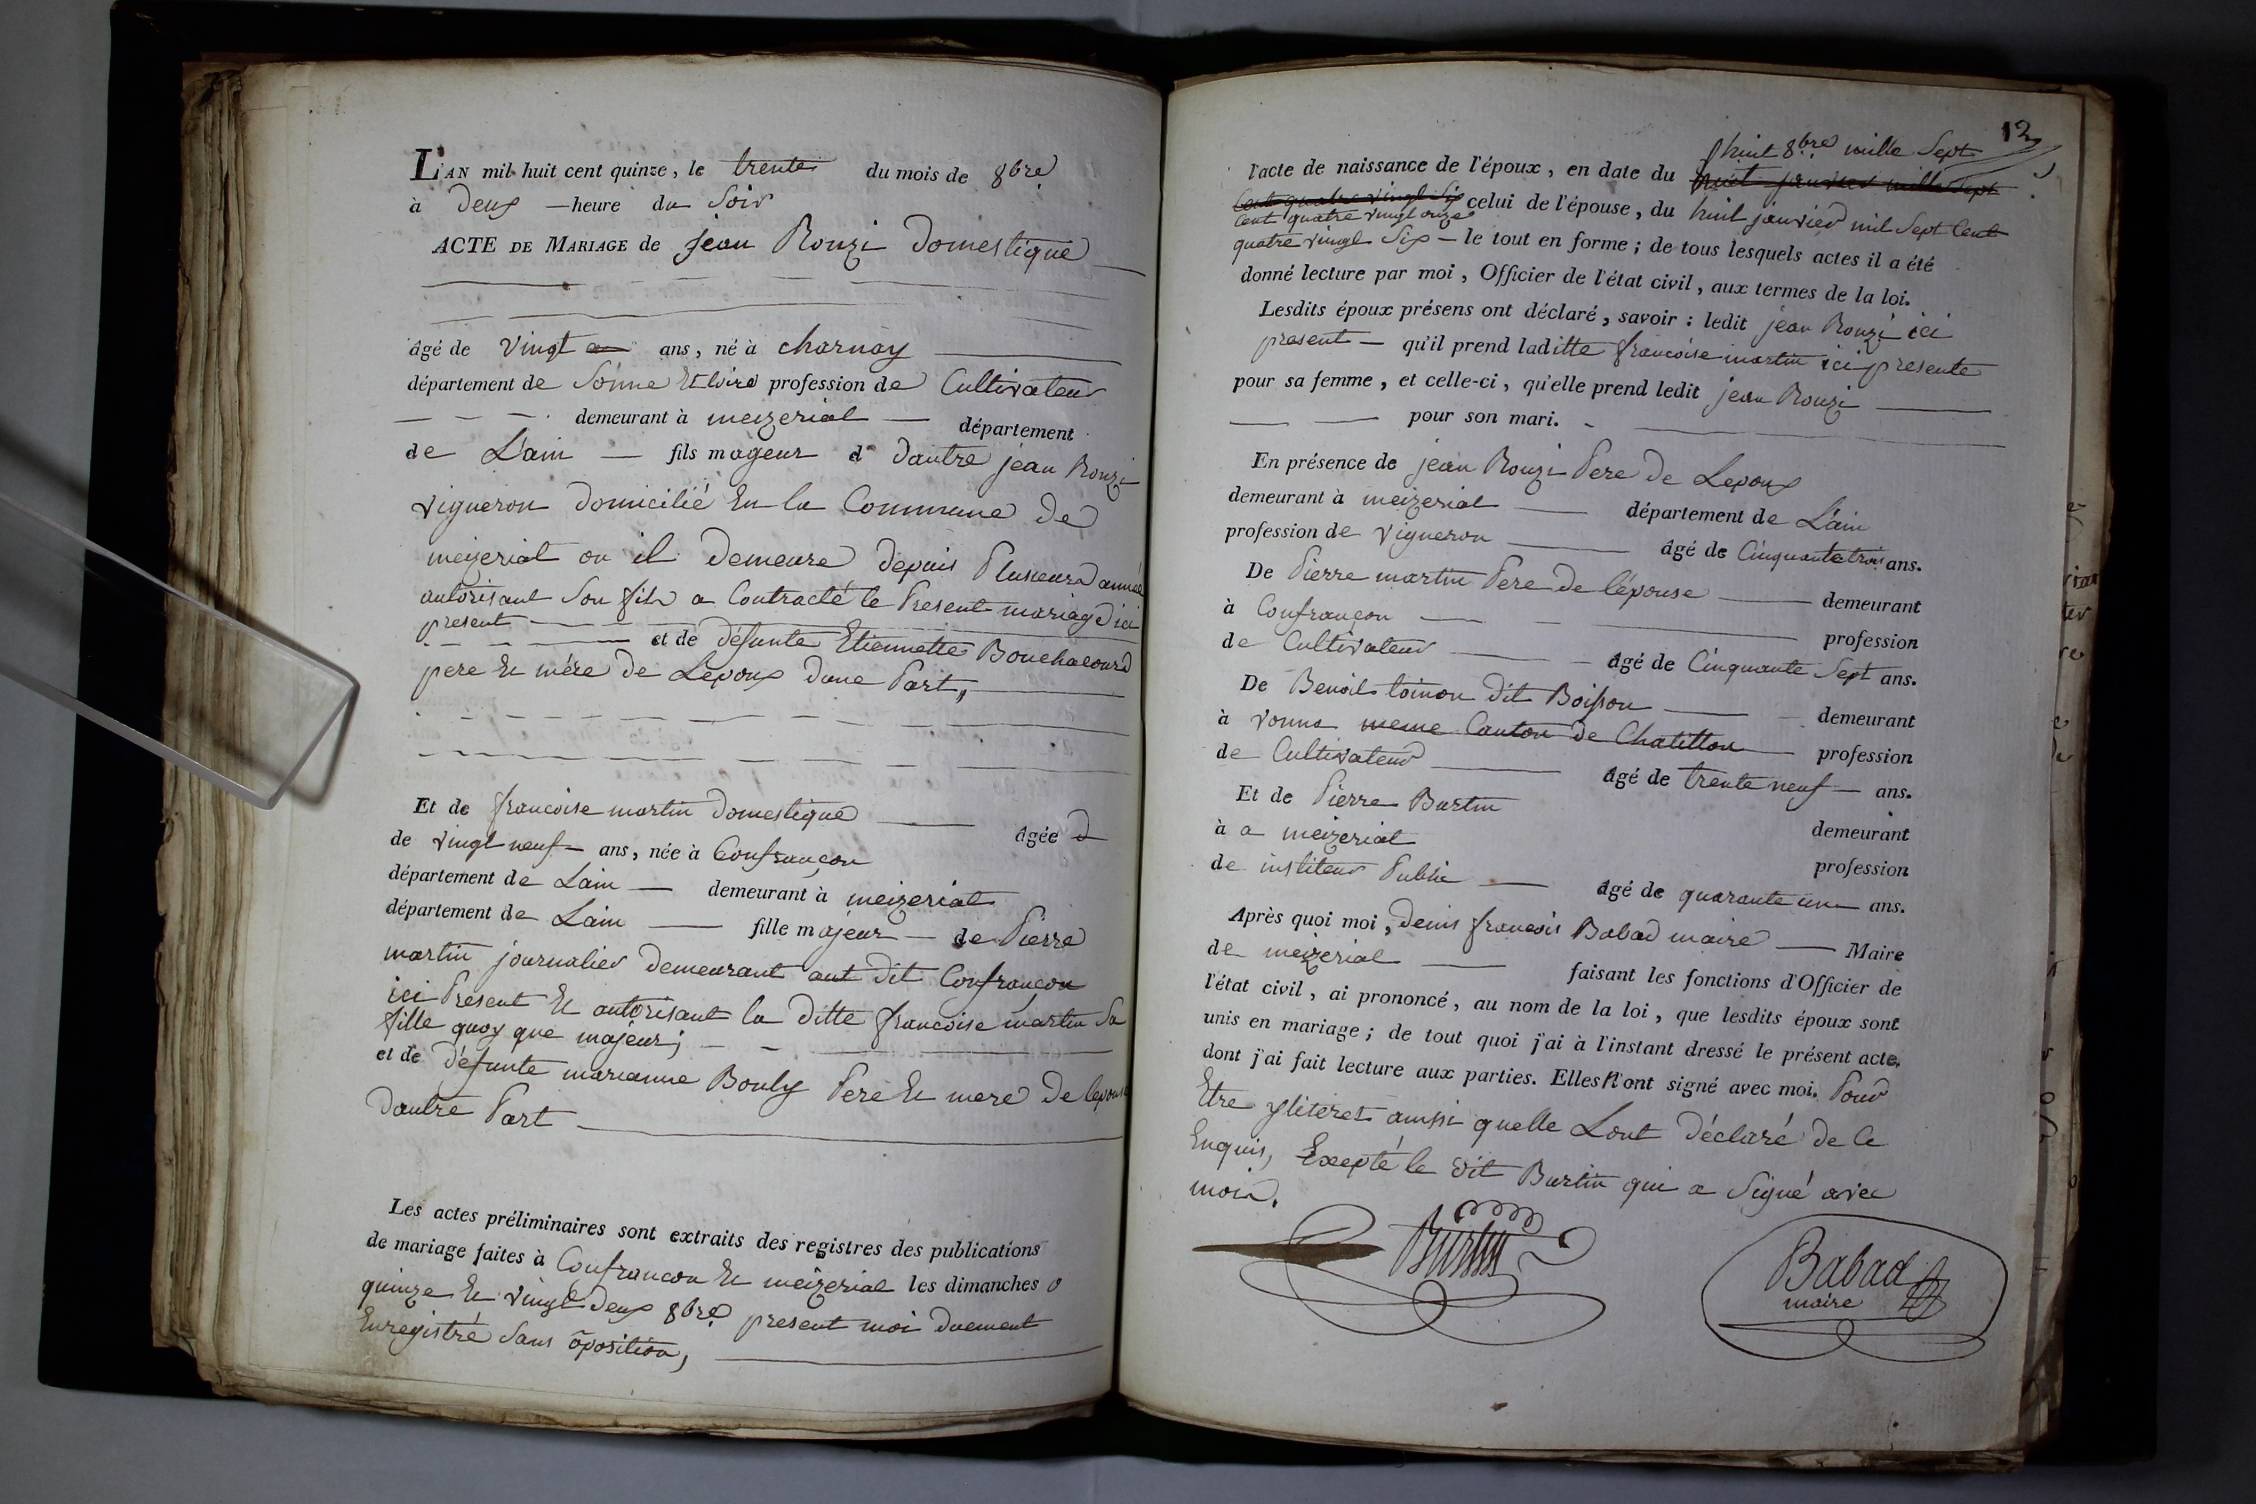 L'AN mil huit cent quinze, le trente du mois de 8bre
à Deux — heure du Soir
ACTE DE MARIAGE de jean Rouzi Domestique
âgé de vingt ans, né à charnay
département de Sonne Et loire profession de Cultivateur
demeurant à meizeriat — département
de L'ain — fils mageur d Dautre jean Rouzi
vigneron domicilié En la Commune de
meizeriat ou il Demeure depuis Plusieurs année
autorisant Son fils a Contracté le Present mariage ici
present
et de défunte Etiennette Bouchacourd
pere Et mére de Lepoux dune Part,,
Et de francoise martin Domestique — âgée D
de vingt neuf — ans, née à Confrançon
département de Lain — demeurant à meizeriat
département de Lain — fille majeur — de Pierre
martin journalier demeurant aut dit Confrançon
ici Present Et autorisant la ditte francoise martin Sa
fille quoy que majeur;
et de défunte marianne Bouly Pere Et mere De lepouse
Dautre Part
Les actes préliminaires sont extraits des registres des publications
de mariage faites à Confrancon Et meizeriat les dimanches
quinze Et vingt Deux 8bre present moi duement
Enregistré Sans oposition,
12
huit 8bre mille Sept
l'acte de naissance de l'époux, en date du huit janvier mille Sept
Cent quatre vingt Six celui de l'épouse, du huit janvier mil Sept Cent
Cent quatre vingt onze
quatre vingt Six — le tout en forme; de tous lesquels actes il a été
donné lecture par moi, Officier de l'état civil, aux termes de la loi.
Lesdits époux présens ont déclaré, savoir: ledit jean Rouzi ici
present — qu'il prend laditte francoise martin ici presente
pour sa femme, et celle-ci, qu'elle prend ledit jean Rouzi
pour son mari.
En présence de jean Rouzi Pere de Lepoux
demeurant à meizeriat — département de L'ain
profession de vigneron — âgé de Cinquante trois ans.
De Pierre martin Pere de lépouse — demeurant
à Confrançon — profession
de Cultivateur — âgé de Cinquante Sept ans.
De Benoit toinon dit Boisson — demeurant
à vonna meme Canton de Chatillon — profession
de Cultivateur — âgé de trente neuf — ans.
Et de Pierre Burtin demeurant
à a meizeriat profession
de institeur Public — âgé de quarante un — ans.
Après quoi moi, denis francois Babad maire — Maire
de meizeriat — faisant les fonctions d'Officier de
l'état civil, ai prononcé, au nom de la loi, que lesdits époux sont
unis en mariage; de tout quoi j'ai à l'instant dressé le présent acte,
dont j'ai fait lecture aux parties. Elles n'ont signé avec moi. Pour
Etre yliteret ainssi quelle Lont déclaré de Ce
Enquis, Exepté le dit Burtin qui a Signé avec
moi.
Burtin
Babad
maire